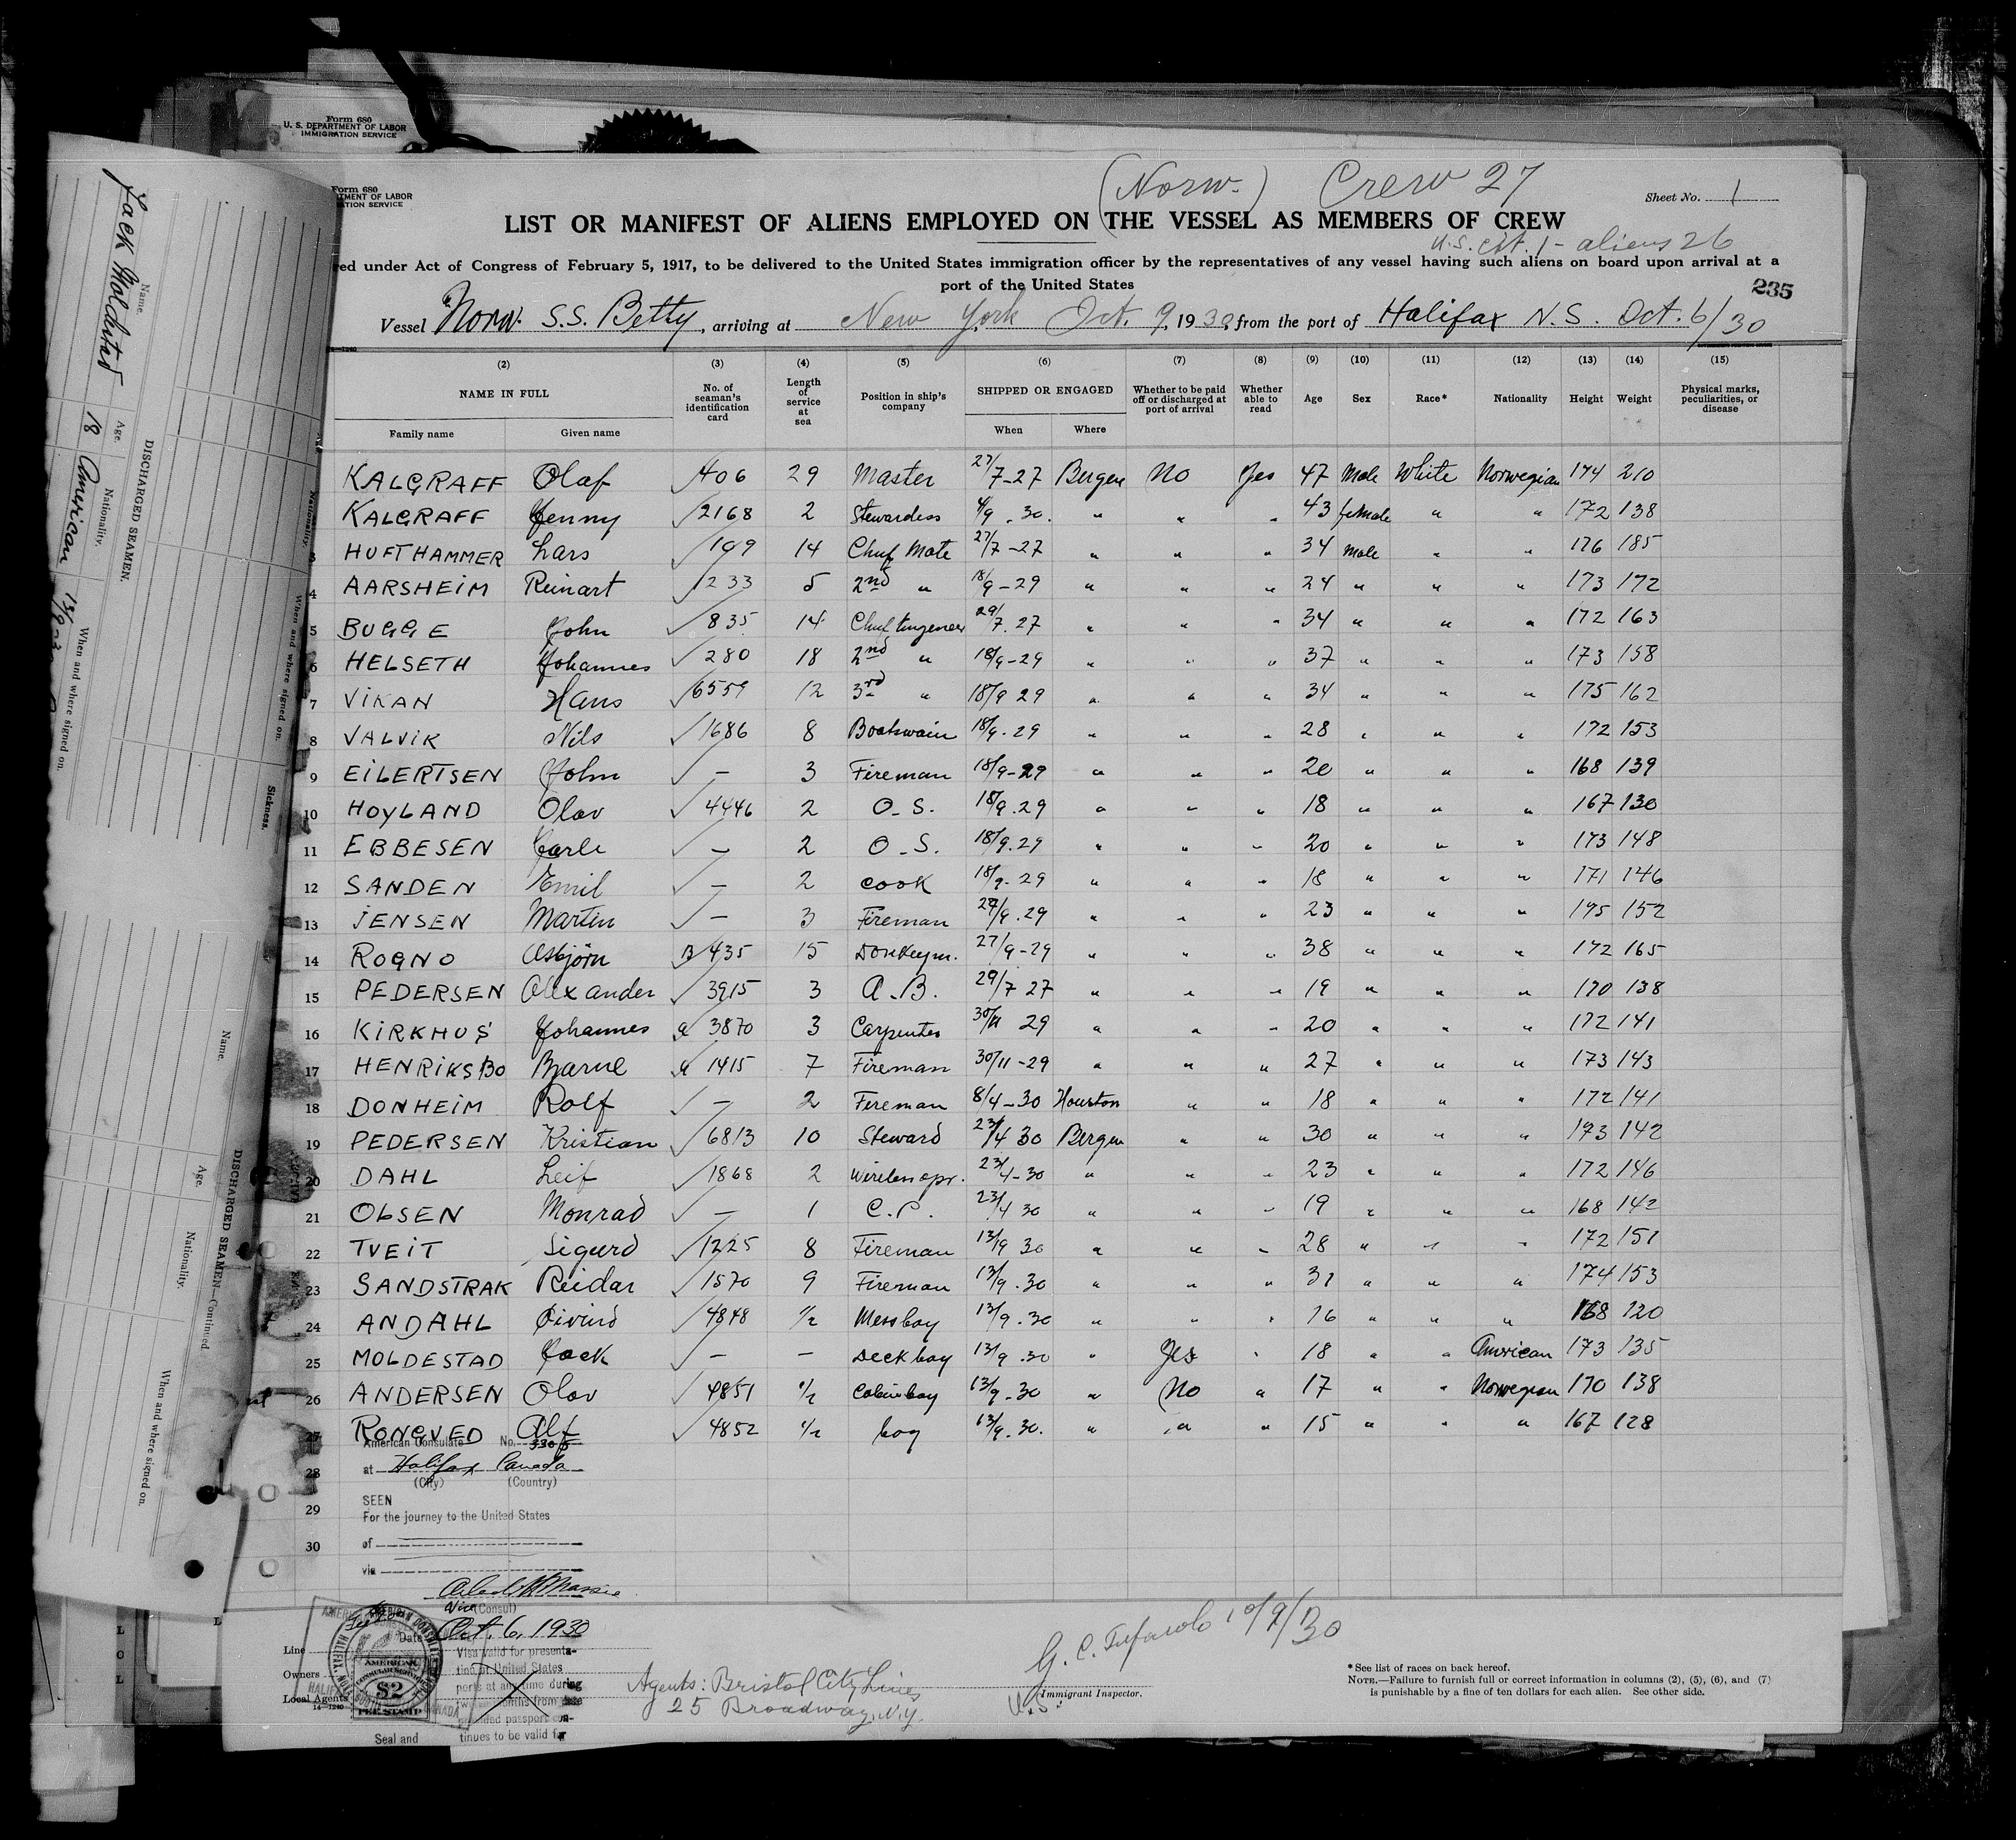 Form 680
U. S. DEPARTMENT OF LABOR
IMMIGRATION SERVICE
Form 680
TMENT OF LABOR
ATION SERVICE
(Norw.) Crew 27
Sheet No. 1
LIST OR MANIFEST OF ALIENS EMPLOYED ON THE VESSEL AS MEMBERS OF CREW
U.S. cit. 1 - aliens 26
red under Act of Congress of February 5, 1917, to be delivered to the United States immigration officer by the representatives of any vessel having such aliens on board upon arrival at a
port of the United States
235
Vessel Norw. S.S. Betty, arriving at New York Oct. 9, 1930, from the port of Halifax N.S. Oct. 6/30
(2) (3) (4) (5) (6) (7) (8) (9) (10) (11) (12) (13) (14) (15)
NAME IN FULL No. of seaman's identification card Length of service at sea Position in ship's company SHIPPED OR ENGAGED Whether to be paid off or discharged at port of arrival Whether able to read Age Sex Race* Nationality Height Weight Physical marks, peculiarities, or disease
Family name Given name When Where
KALGRAFF Olaf 406 29 Master 27/7-27 Bergen No Yes 47 Male White Norwegian 174 210
KALGRAFF Jenny 2168 2 Stewardess 4/9.30. " " " 43 female " " 172 138
3 HUFTHAMMER Lars 199 14 Chief Mate 27/7-27 " " " 34 Male " " 176 185
4 AARSHEIM Reinart 233 5 2nd " 18/9-29 " " " 24 " " " 173 172
5 BUGGE John 835 14 Chief Engeneer 29/7.27 " " " 34 " " " 172 163
6 HELSETH Johannes 280 18 2nd " 18/9-29 " " " 37 " " " 173 158
7 VIKAN Hans 6559 12 3rd " 18/9 29 " " " 34 " " " 175 162
8 VALVIK Nils 1686 8 Boatswain 18/9.29 " " " 28 " " " 172 153
9 EILERTSEN John - 3 Fireman 18/9-29 " " " 20 " " " 168 139
10 HOYLAND Olav 4446 2 O.S. 18/9.29 " " " 18 " " " 167 130
11 EBBESEN Carle - 2 O.S. 18/9.29 " " " 20 " " " 173 148
12 SANDEN Emil - 2 cook 18/9-29 " " " 18 " " " 171 146
13 JENSEN Martin - 3 Fireman 27/9.29 " " " 23 " " " 175 152
14 ROGNO Asbjörn B 435 15 Donkeym. 27/9-29 " " " 38 " " " 172 165
15 PEDERSEN Alexander 3915 3 A.B. 29/7 27 " " " 19 " " " 170 138
16 KIRKHUS Johannes a 3870 3 Carpenter 30/11 29 " " " 20 " " " 172 141
17 HENRIKSBO Bjarne a 1415 7 Fireman 30/11-29 " " " 27 " " " 173 143
18 DONHEIM Rolf - 2 Fireman 8/4-30 Houston " " 18 " " " 172 141
19 PEDERSEN Kristian 6813 10 Steward 23/4 30 Bergen " " 30 " " " 173 142
20 DAHL Leif 1868 2 Wireless opr. 23/4-30 " " " 23 " " " 172 146
21 OLSEN Monrad - 1 C.P. 23/4 30 " " " 19 " " " 168 142
22 TVEIT Sigurd 1225 8 Fireman 13/9 30 " " " 28 " " " 172 151
23 SANDSTRAK Reidar 1570 9 Fireman 13/9.30 " " " 31 " " " 174 153
24 ANDAHL Öivind 4848 1/2 Messboy 13/9.30 " " " 16 " " " 168 120
25 MOLDESTAD Jack - - Deckboy 13/9.30 " Yes " 18 " " American 173 135
26 ANDERSEN Olav 4851 1/2 Cabinboy 13/9.30 " No " 17 " " Norwegian 170 138
27 RONGVED Alf 4852 1/2 boy 13/9.30. " " " 15 " " " 167 128
American Consulate No. 3308
28 at Halifax Canada
(City) (Country)
29 SEEN
For the journey to the United States
30 of
via
Vice (Consul)
Date Oct. 6, 1930
Line
Owners
Local Agents
14-1240
AMERICAN CONSULAR SERVICE
$2
FEE STAMP
HALIFAX, NOVA SCOTIA, CANADA
Visa valid for presenta-
tion at United States
ports at any time during
twelve months from date
provided passport con-
tinues to be valid for
Seal and
Agents: Bristol City Lines
25 Broadway, N.Y.
10/9/30
U.S. Immigrant Inspector.
*See list of races on back hereof.
NOTE.—Failure to furnish full or correct information in columns (2), (5), (6), and (7)
is punishable by a fine of ten dollars for each alien. See other side.
DISCHARGED SEAMEN.
Name. Age. Nationality. When and where signed on.
Jack Moldestad 18 American
Nationality. When and where signed on. Sickness.
DISCHARGED SEAMEN—Continued.
Name. Age. Nationality. When and where signed on.